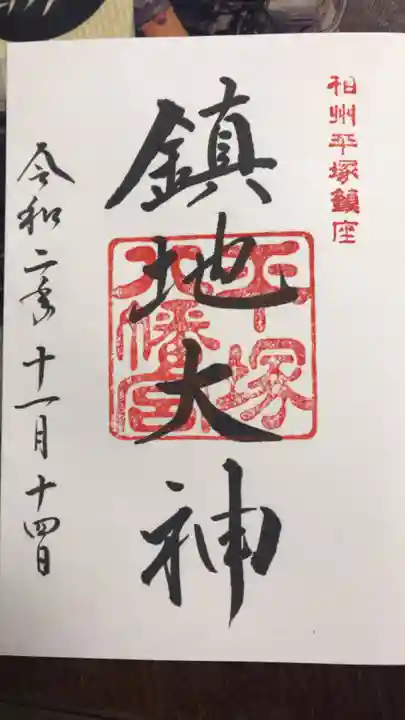 相州平塚鎮座
鎮地大神
平塚
八幡宮
令和二年十一月十四日